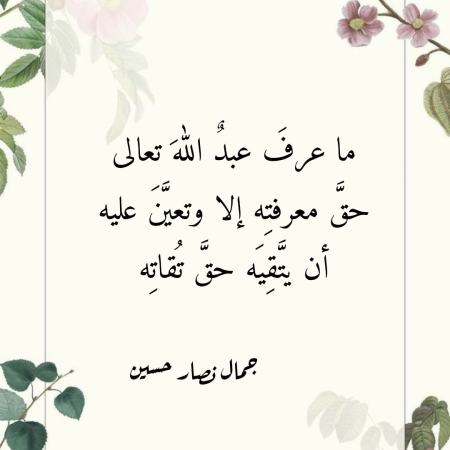 ما عرفَ عبدٌ اللهَ تعالى
حقَّ معرفتِه إلا وتعيَّنَ عليه
أن يتَّقِيَه حقَّ تُقاتِه
جمال نصار حسين